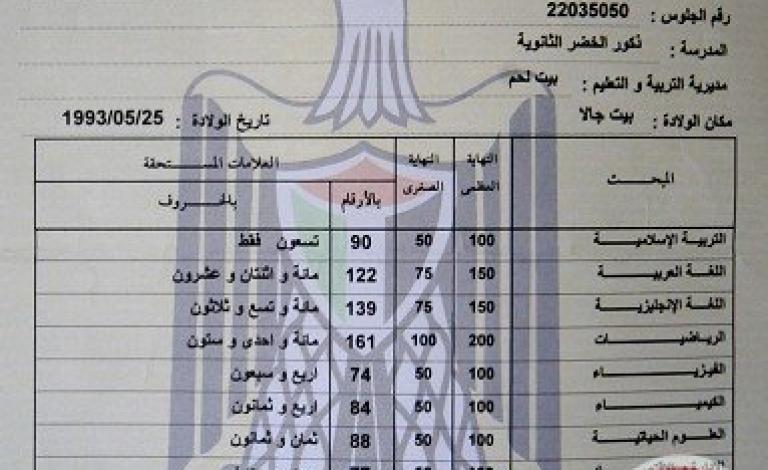 رقم الجلوس : 22035050
المدرسة : ذكور الخضر الثانوية
مديرية التربية و التعليم : بيت لحم
مكان الولادة : بيت جالا تاريخ الولادة : 1993/05/25
المبحث النهاية العظمى النهاية الصغرى العلامات المستحقة
بالأرقام بالحروف
التربية الإسلامية 100 50 90 تسعون فقط
اللغة العربية 150 75 122 مائة و اثنتان و عشرون
اللغة الإنجليزية 150 75 139 مائة و تسع و ثلاثون
الرياضيات 200 100 161 مائة و احدى و ستون
الفيزياء 100 50 74 اربع و سبعون
الكيمياء 100 50 84 اربع و ثمانون
العلوم الحياتية 100 50 88 ثمان و ثمانون